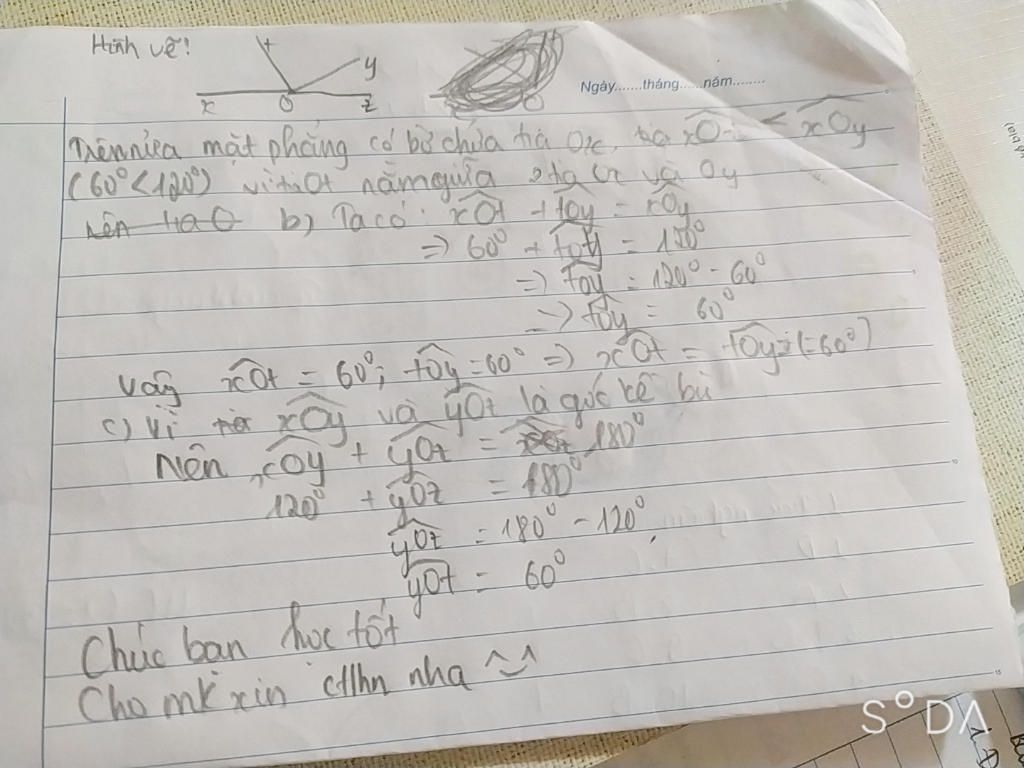 Hình vẽ!
t
y
x O z
Ngày.......tháng......năm........
Trên nửa mặt phẳng có bờ chứa tia Ox, < xOy
(60° < 120°) vì tia Ot nằm giữa 2 tia Ox và Oy
b) Ta có: xOt + tOy = xOy
=> 60° + tOy = 120°
=> tOy = 120° - 60°
=> tOy = 60°
Vậy xOt = 60°; tOy = 60° => xOt = tOy (=60°)
c) Vì xOy và yOz là góc kề bù
Nên xOy + yOz = 180°
120° + yOz = 180°
yOz = 180° - 120°
yOz = 60°
Chúc bạn học tốt
Cho mk xin ctlhn nha ^-^
15
SODA